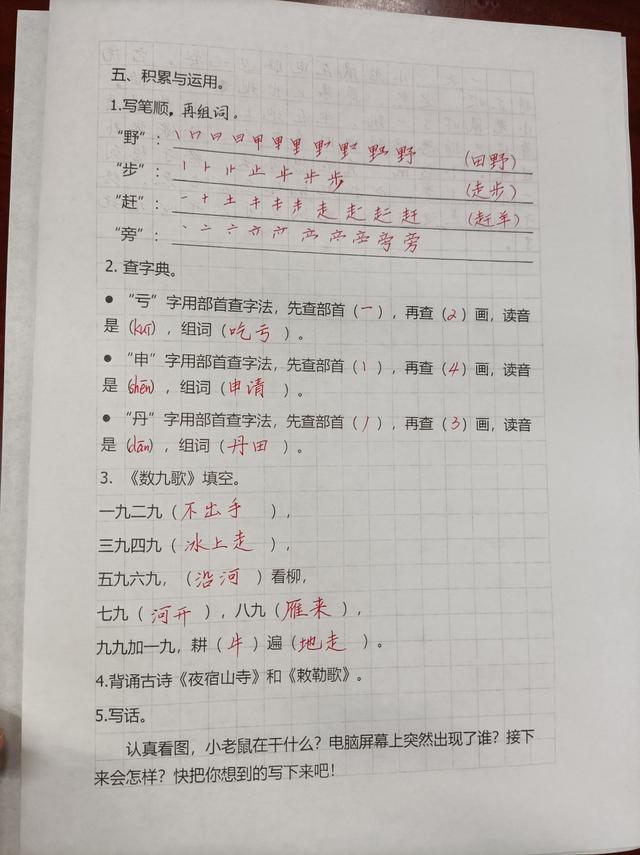 五、积累与运用。
1.写笔顺，再组词。
“野”： 丨 口 日 日 甲 甲 里 野 (田野)
“步”： 丨 卜 止 止 步 (走步)
“赶”： 一 十 土 走 赶 (赶羊)
“旁”： 丶 亠 旁 旁
2. 查字典。
● “亏”字用部首查字法，先查部首（一），再查（2）画，读音
是（kuī），组词（吃亏）。
● “申”字用部首查字法，先查部首（丨），再查（4）画，读音
是（shēn），组词（申请）。
● “丹”字用部首查字法，先查部首（丿），再查（3）画，读音
是（dān），组词（丹田）。
3. 《数九歌》填空。
一九二九（不出手），
三九四九（冰上走），
五九六九，（沿河）看柳，
七九（河开），八九（雁来），
九九加一九，耕（牛）遍（地走）。
4.背诵古诗《夜宿山寺》和《敕勒歌》。
5.写话。
认真看图，小老鼠在干什么？电脑屏幕上突然出现了谁？接下
来会怎样？快把你想到的写下来吧！